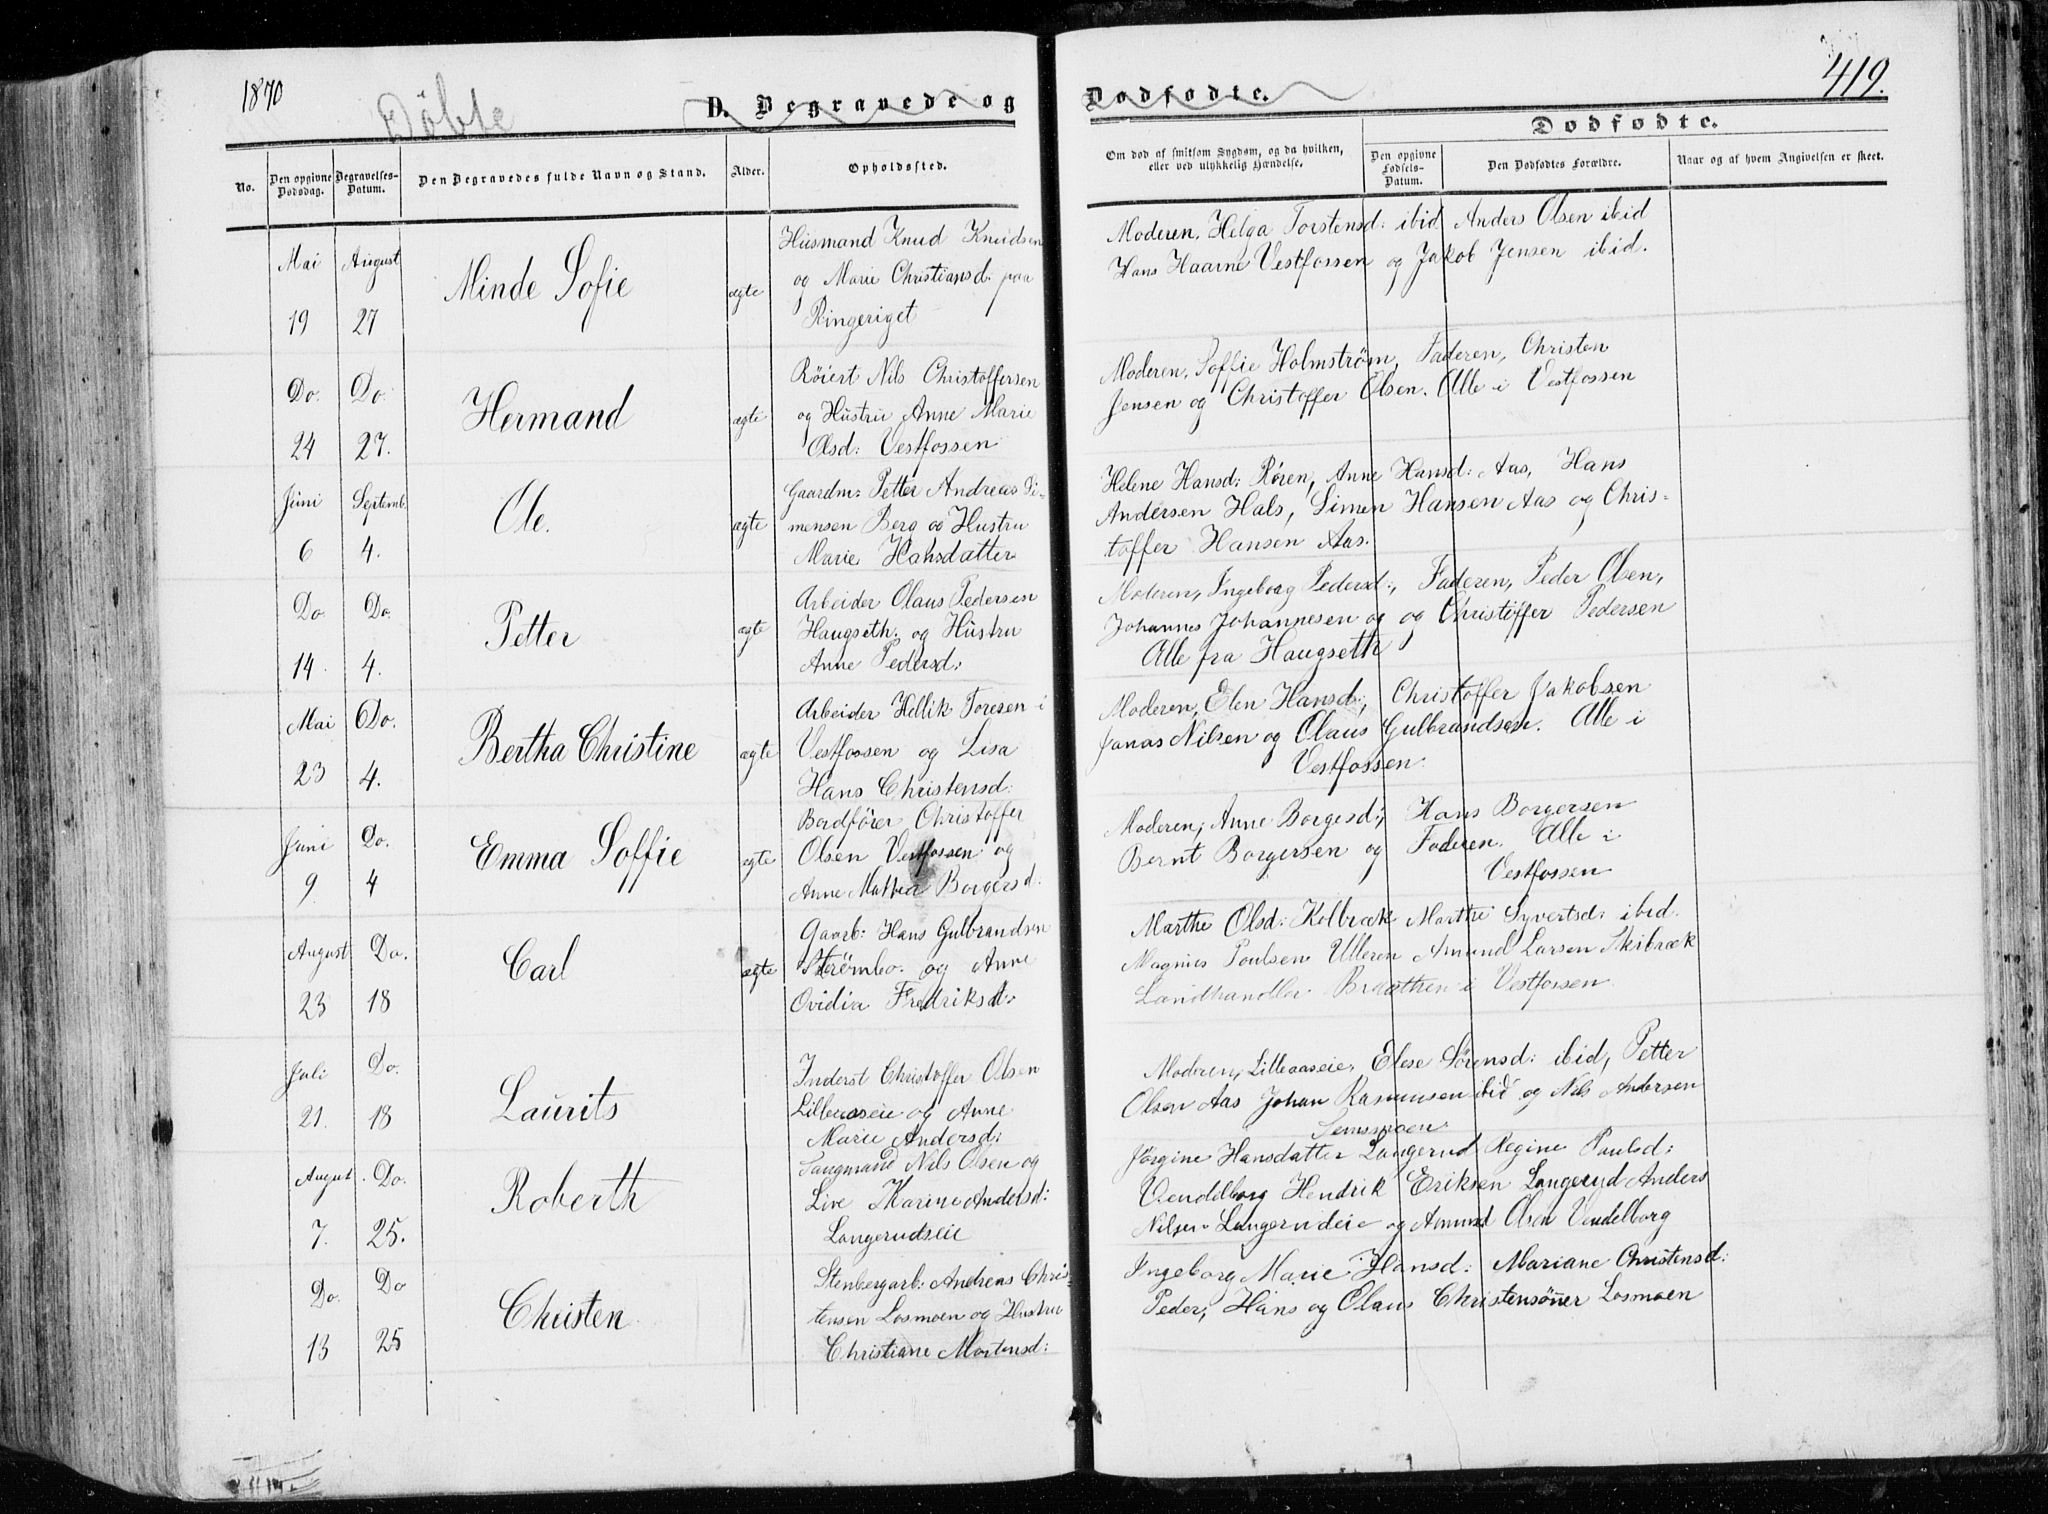 1870
419.
Döbte
D. Begravede og Dodfodte.
Dodfodte.
No.
Den opgivne Dodsdag.
Begravelses-Datum.
Den Begravedes fulde Navn og Stand.
Alder.
Opholdssted.
Om dod af smitsom Sygdom, og da hvilken, eller ved ulykkelig Hændelse.
Den opgivne Fodsels-Datum.
Den Dodfodtes Forældre.
Naar og af hvem Angivelsen er skeet.
Mai 19
August 27
Minde Sofie
ægte
Husmand Knud Knudsen
og Marie Christiansd: paa
Ringeriget
Moderen, Helga Torstensd: ibid Anders Olsen ibid
Hans Haarne Vestfossen og Jakob Jensen ibid.
Do. 24
Do. 27.
Hermand
ægte
Röiert Nils Christoffersen
og Hustru Anne Marie
Olsd: Vestfossen
Moderen, Soffie Holmström, Faderen, Christen
Jensen og Christoffer Olsen. Alle i Vestfossen
Juni 6
Septemb. 4.
Ole.
ægte
Gaardm: Petter Andreas Si-
mensen Berg og Hustru
Marie Hansdatter
Helene Hansd: Rören, Anne Hansd: Aas, Hans
Andersen Hals, Simen Hansen Aas og Chris-
toffer Hansen Aas.
Do. 14.
Do. 4.
Petter
ægte
Arbeider Olaus Pedersen
Haugseth. og Hustru
Anne Pedersd:
Moderen, Ingeborg Pedersd:, Faderen, Peder Olsen,
Johannes Johannesen og og Christoffer Pedersen
Alle fra Haugseth
Mai 23
Do. 4.
Bertha Christine
ægte
Arbeider Hellik Toresen i
Vestfossen og Lisa
Hans Christensd:
Moderen, Elen Hansd:, Christoffer Jakobsen
Jonas Nilsen og Olaus Gulbrandsen. Alle i
Vestfossen.
Juni 9.
Do. 4
Emma Soffie
ægte
Bordförer Christoffer
Olsen Vestfossen og
Anne Mathea Borgersd.
Moderen, Anne Borgesd:, Hans Borgersen
Bernt Borgersen og Faderen. Alle i
Vestfossen
August 23
Do. 18
Carl
ægte
Gaarb: Hans Gulbrandsen
Strömbo. og Anne
Ovidia Fredriksd:
Marthe Olsd: Kolbræk Marthe Syvertsd: ibid.
Magnus Poulsen Ulleren Amund Larsen Skibræk
Landhandler Braathen i Vestfossen
Juli 21.
Do. 18
Laurits
Inderst Christoffer Olsen
Lilleaaseie og Anne
Marie Andersd:
Moderen, Lilleaaseie, Elese Sörensd: ibid, Petter
Olsen Aas Johan Rasmusen ibid og Nils Andersen
Semsmoen
August 7.
Do. 25.
Roberth
Saugmand Nils Olsen og
Live Karine Andersd:
Langerudseie
Jörgine Hansdatter Langerud Regine Paulsd:
Vendelborg Hendrik Eriksen Langerud Anders
Nilsen Langerudeie og Amund Olsen Vendelborg
Do. 13
Do 25
Christen
Stenbergarb: Andreas Chris-
tensen Losmoen og Hustru
Christiane Mortensd:
Ingeborg Marie Hansd: Mariane Christensd:
Peder, Hans og Olaus Christensönner Losmoen